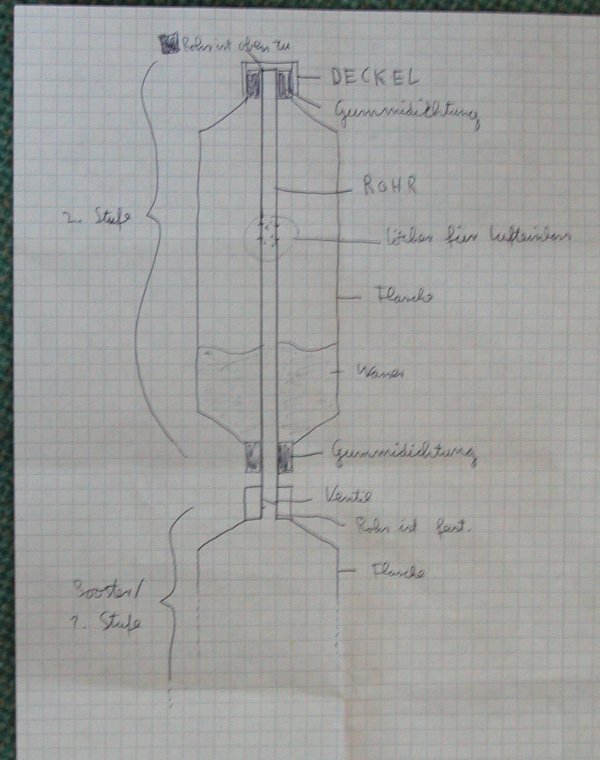 Rohr ist oben zu
DECKEL
Gummidichtung
ROHR
2. Stufe
Löcher für Lufteinlass
Flasche
Wasser
Gummidichtung
Ventil
Rohr ist fest.
Flasche
Booster/
1. Stufe